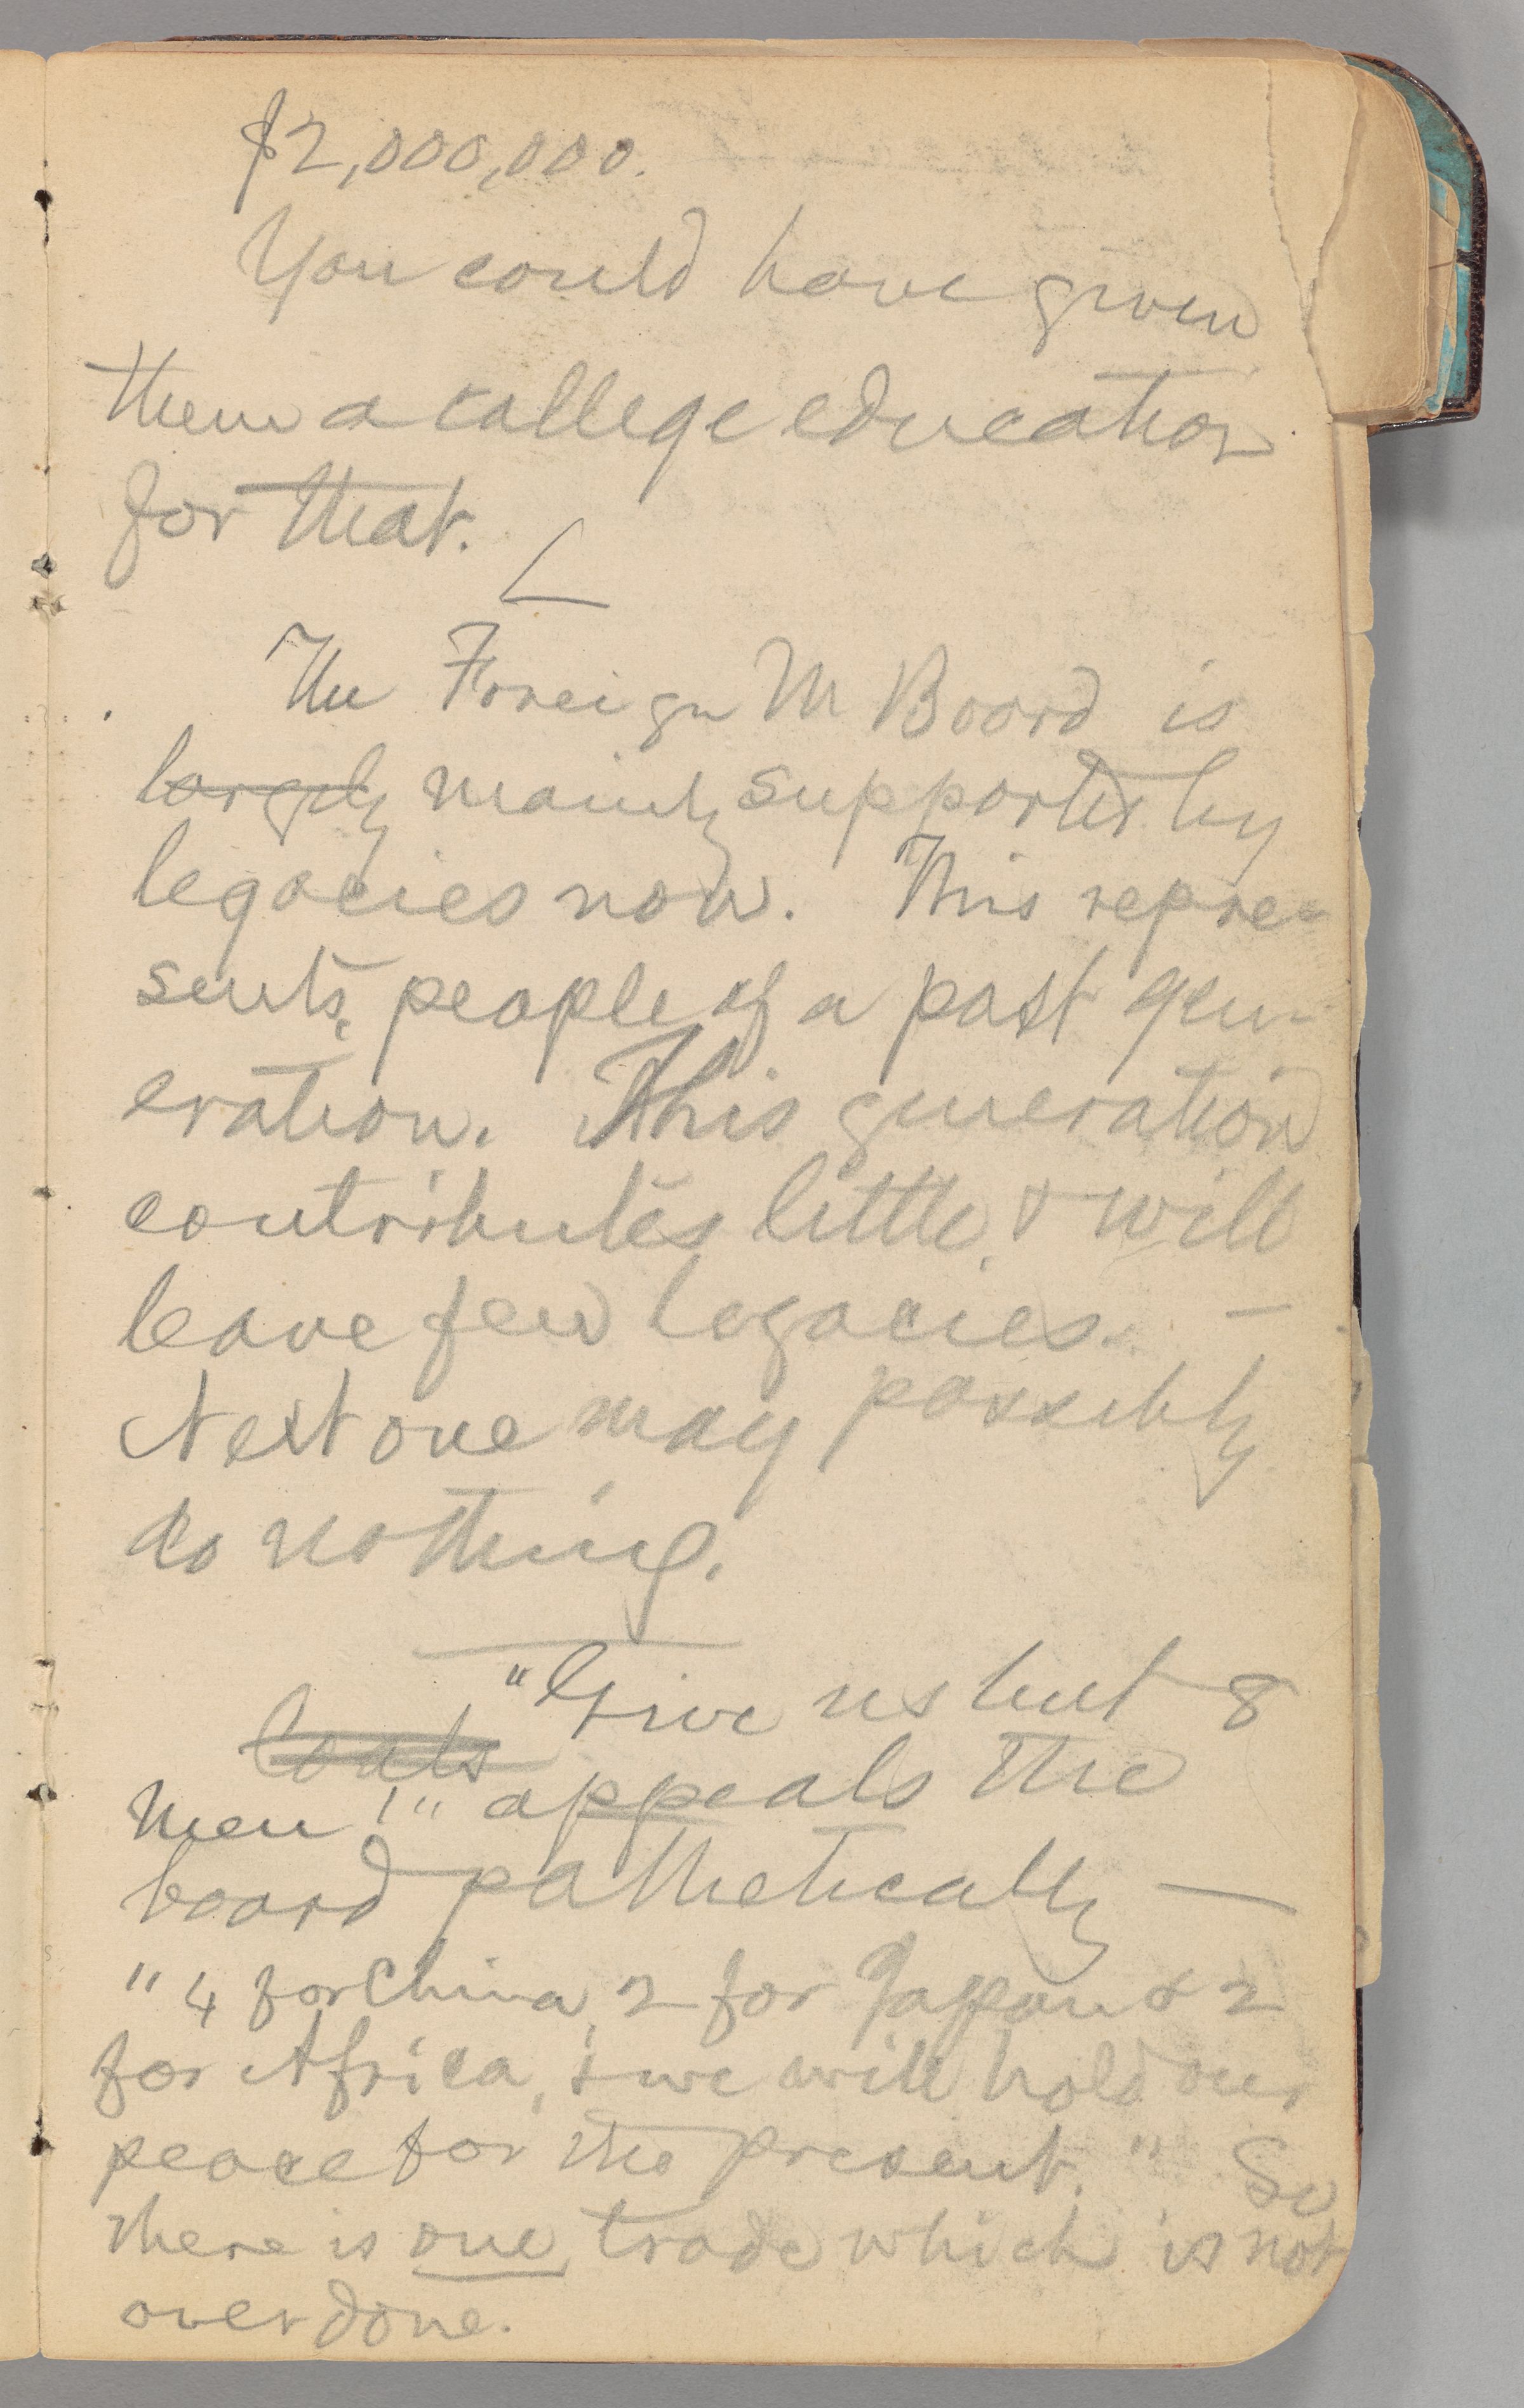 $2,000,000.
You could have given
them a college education
for that.
The Foreign M Board is
largely mainly supported by
legacies now. This repre-
sents, people of a past gen-
eration. This generation
contributes little, & will
leave few legacies. —
Next one may possibly
do nothing.
"Give us but 8
men!" appeals the
board pathetically —
"4 for China, 2 for Japan & 2
for Africa, & we will hold our
peace for the present." So
there is one trade which is not
overdone.